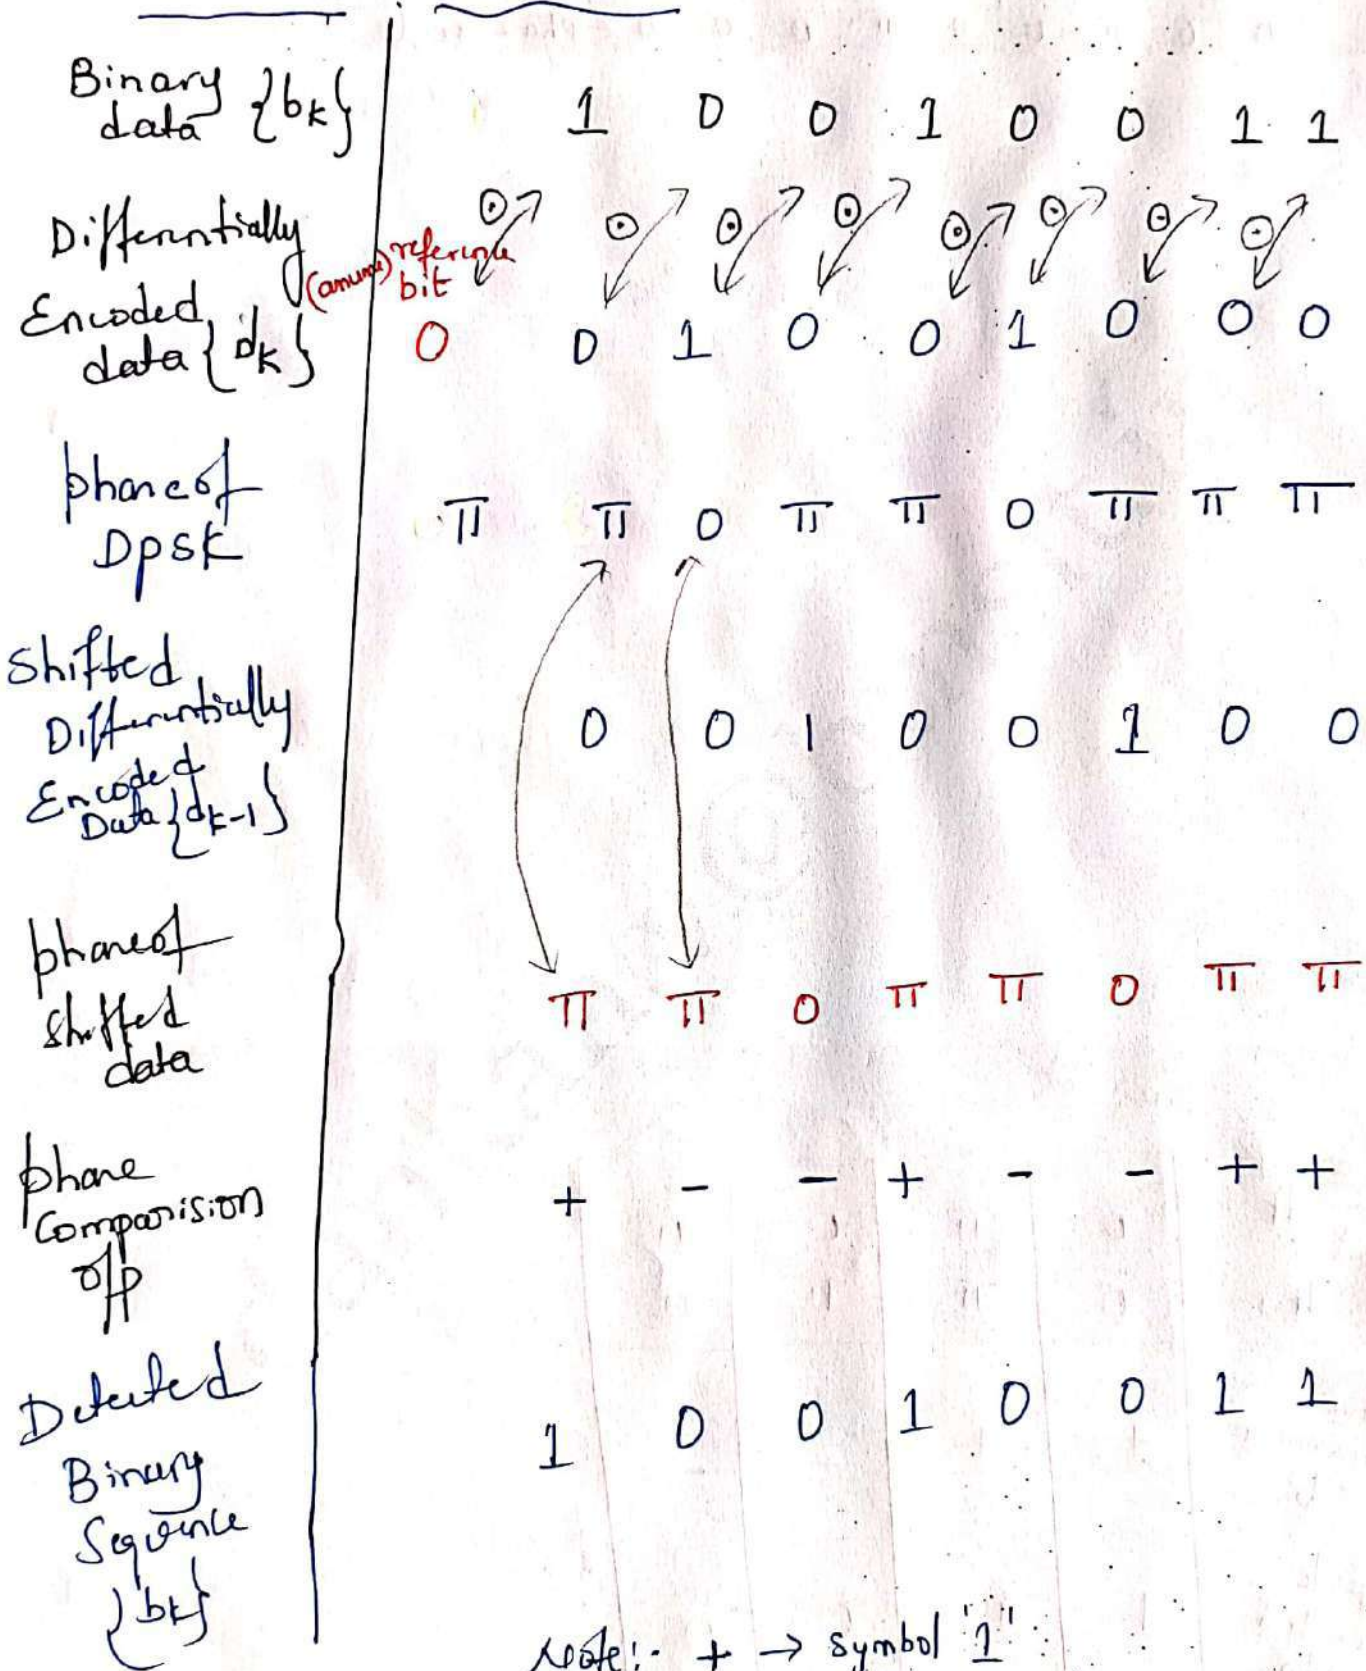 Binary data {bk} 1 0 0 1 0 0 1 1
Differntially Encoded data {dk} (assume) reference bit 0 0 1 0 0 1 0 0 0
phase of DPSK π π 0 π π 0 π π π
Shifted Differntially Encoded Data {dk-1} 0 0 1 0 0 1 0 0
phase of Shifted data π π 0 π π 0 π π
phase Comparision o/p + - - + - - + +
Detected Binary Sequence {bk} 1 0 0 1 0 0 1 1
Note:- + → symbol '1'